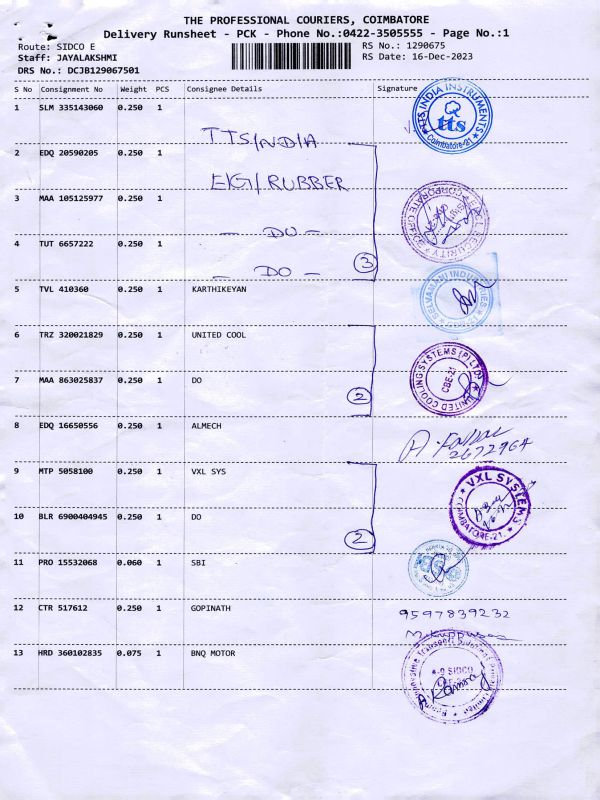 THE PROFESSIONAL COURIERS, COIMBATORE
Delivery Runsheet - PCK - Phone No.:0422-3505555 - Page No.:1
Route: SIDCO E
RS No.: 1290675
Staff: JAYALAKSHMI
RS Date: 16-Dec-2023
DRS No.: DCJB129067501
S No Consignment No Weight PCS Consignee Details Signature
1 SLM 335143060 0.250 1 TTS/NDIA
TTS INDIA INSTRUMENTS
tts
Coimbatore-21
2 EDQ 20590205 0.250 1 EKG/RUBBER
3 MAA 105125977 0.250 1 - DO -
SECURITY
CORPORATE OFFICE
4 TUT 6657222 0.250 1 - DO -
3
5 TVL 410360 0.250 1 KARTHIKEYAN
SELVAMANI INDUSTRIES
6 TRZ 320021829 0.250 1 UNITED COOL
UNITED COOLING SYSTEMS (P) LTD
CBE-21
7 MAA 863025837 0.250 1 DO
2
8 EDQ 16650556 0.250 1 ALMECH
2672964
9 MTP 5058100 0.250 1 VXL SYS
VXL SYSTEMS
COIMBATORE-21.
10 BLR 6900404945 0.250 1 DO
2
11 PRO 15532068 0.060 1 SBI
12 CTR 517612 0.250 1 GOPINATH
9597839232
13 HRD 360102835 0.075 1 BNQ MOTOR
SIDCO
A. Ramraj